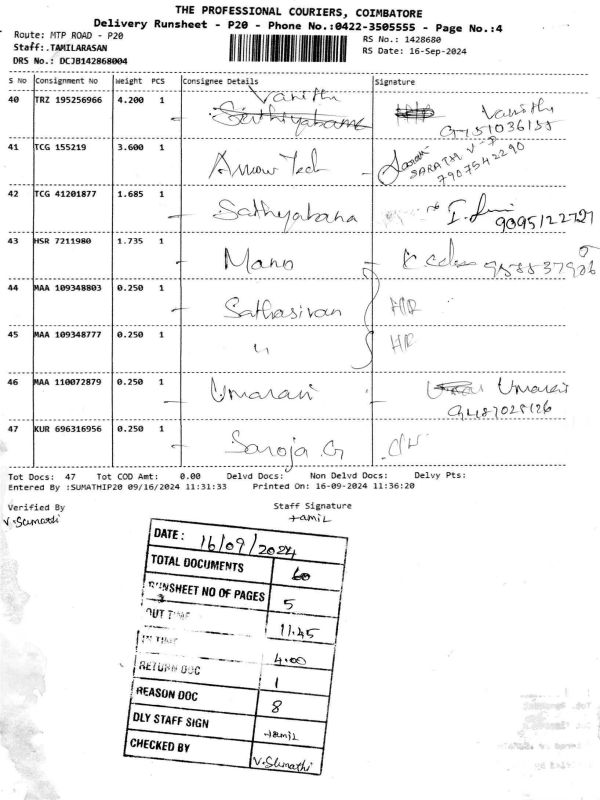 THE PROFESSIONAL COURIERS, COIMBATORE
Delivery Runsheet - P20 - Phone No.:0422-3505555 - Page No.:4
Route: MTP ROAD - P20
RS No.: 1428680
Staff:.TAMILARASAN
RS Date: 16-Sep-2024
DRS No.: DCJB142868004
S No Consignment No Weight PCS Consignee Details Signature
40 TRZ 195256966 4.200 1 Vanitha Sathiyabama Vanitha
41 TCG 155219 3.600 1 Arrow Tech SARATH V-P
7907542290
42 TCG 41201877 1.685 1 Sathyabama
9095122727
43 HSR 7211980 1.735 1 Mano
44 MAA 109348803 0.250 1 Sathasivan
45 MAA 109348777 0.250 1 "
46 MAA 110072879 0.250 1 Umarani Umarani
47 KUR 696316956 0.250 1 Saroja G
Tot Docs: 47 Tot COD Amt: 0.00 Delvd Docs: Non Delvd Docs: Delvy Pts:
Entered By :SUMATHIP20 09/16/2024 11:31:33 Printed On: 16-09-2024 11:36:20
Verified By Staff Signature
V.Sumathi tamil
DATE: 16/09/2024
TOTAL DOCUMENTS 60
RUNSHEET NO OF PAGES 5
OUT TIME 11.45
IN TIME 4.00
RETURN DOC 1
REASON DOC 8
DLY STAFF SIGN tamil
CHECKED BY V.Sumathi